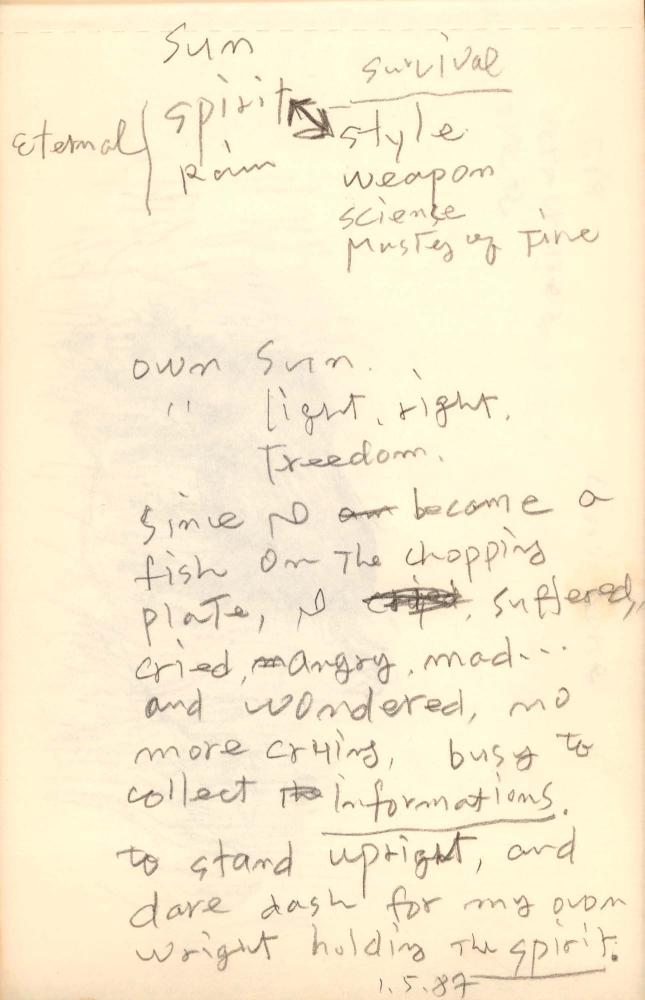 Sun
survival
Eternal { spirit
style
Rain
weapon
science
Mastey of Time
own Sun.
" light, right,
Freedom.
Since I am become a
fish on The chopping
plate, I cried, suffered,
cried, angry, mad...
and wondered, no
more crying, busy to
collect the informations.
to stand upright, and
dare dash for my own
wright holding The spirit.
1.5.87